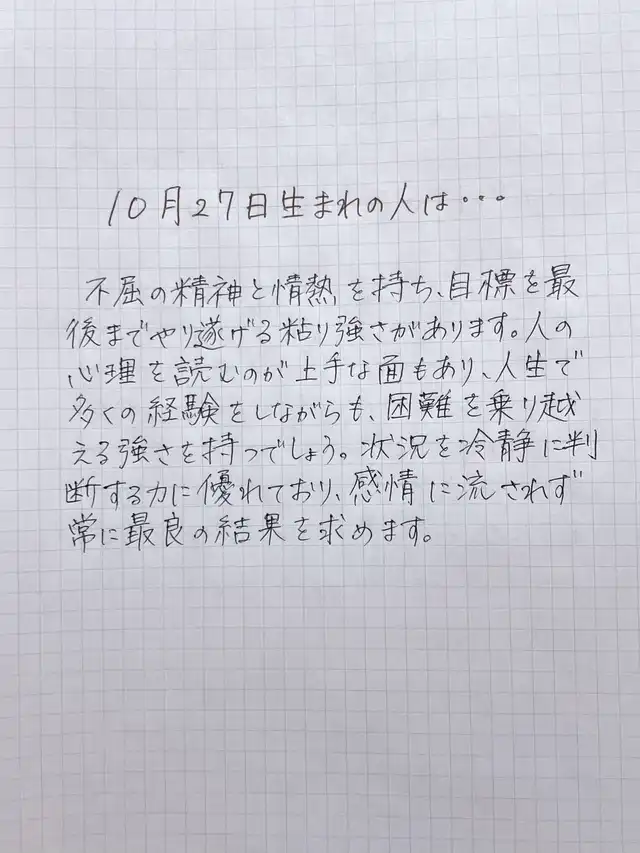 10月27日生まれの人は・・・
不屈の精神と情熱を持ち、目標を最
後までやり遂げる粘り強さがあります。人の
心理を読むのが上手な面もあり、人生で
多くの経験をしながらも、困難を乗り越
える強さを持つでしょう。状況を冷静に判
断する力に優れており、感情に流されず
常に最良の結果を求めます。